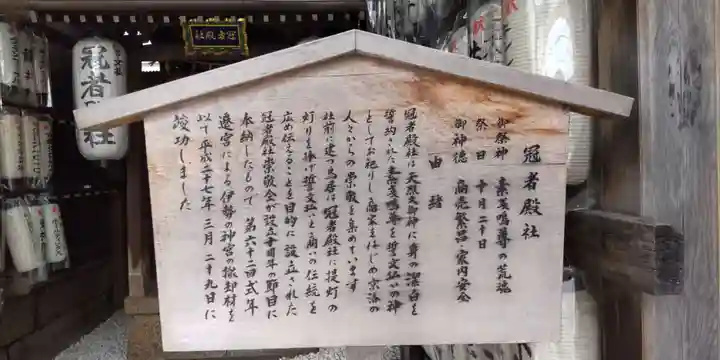 冠者殿社
御祭神 素戔嗚尊の荒魂
祭日 十月二十日
御神徳 商売繁昌・家内安全
由緒
冠者殿社は天照大御神に身の潔白を
誓約された素戔嗚尊を誓文払いの神
としてお祀りし商家をはじめ京洛の
人々からの崇敬を集めています
社前に建つ鳥居は冠者殿社に提灯の
灯りを捧げ誓文払いと商いの伝統を
広め伝えることを目的に設立された
冠者殿社崇敬会が設立十周年の節目に
奉納したもので 第六十二回式年
遷宮による伊勢の神宮の撤却材を
以て平成二十七年三月二十九日に
竣功しました
冠者殿社
冠者殿社